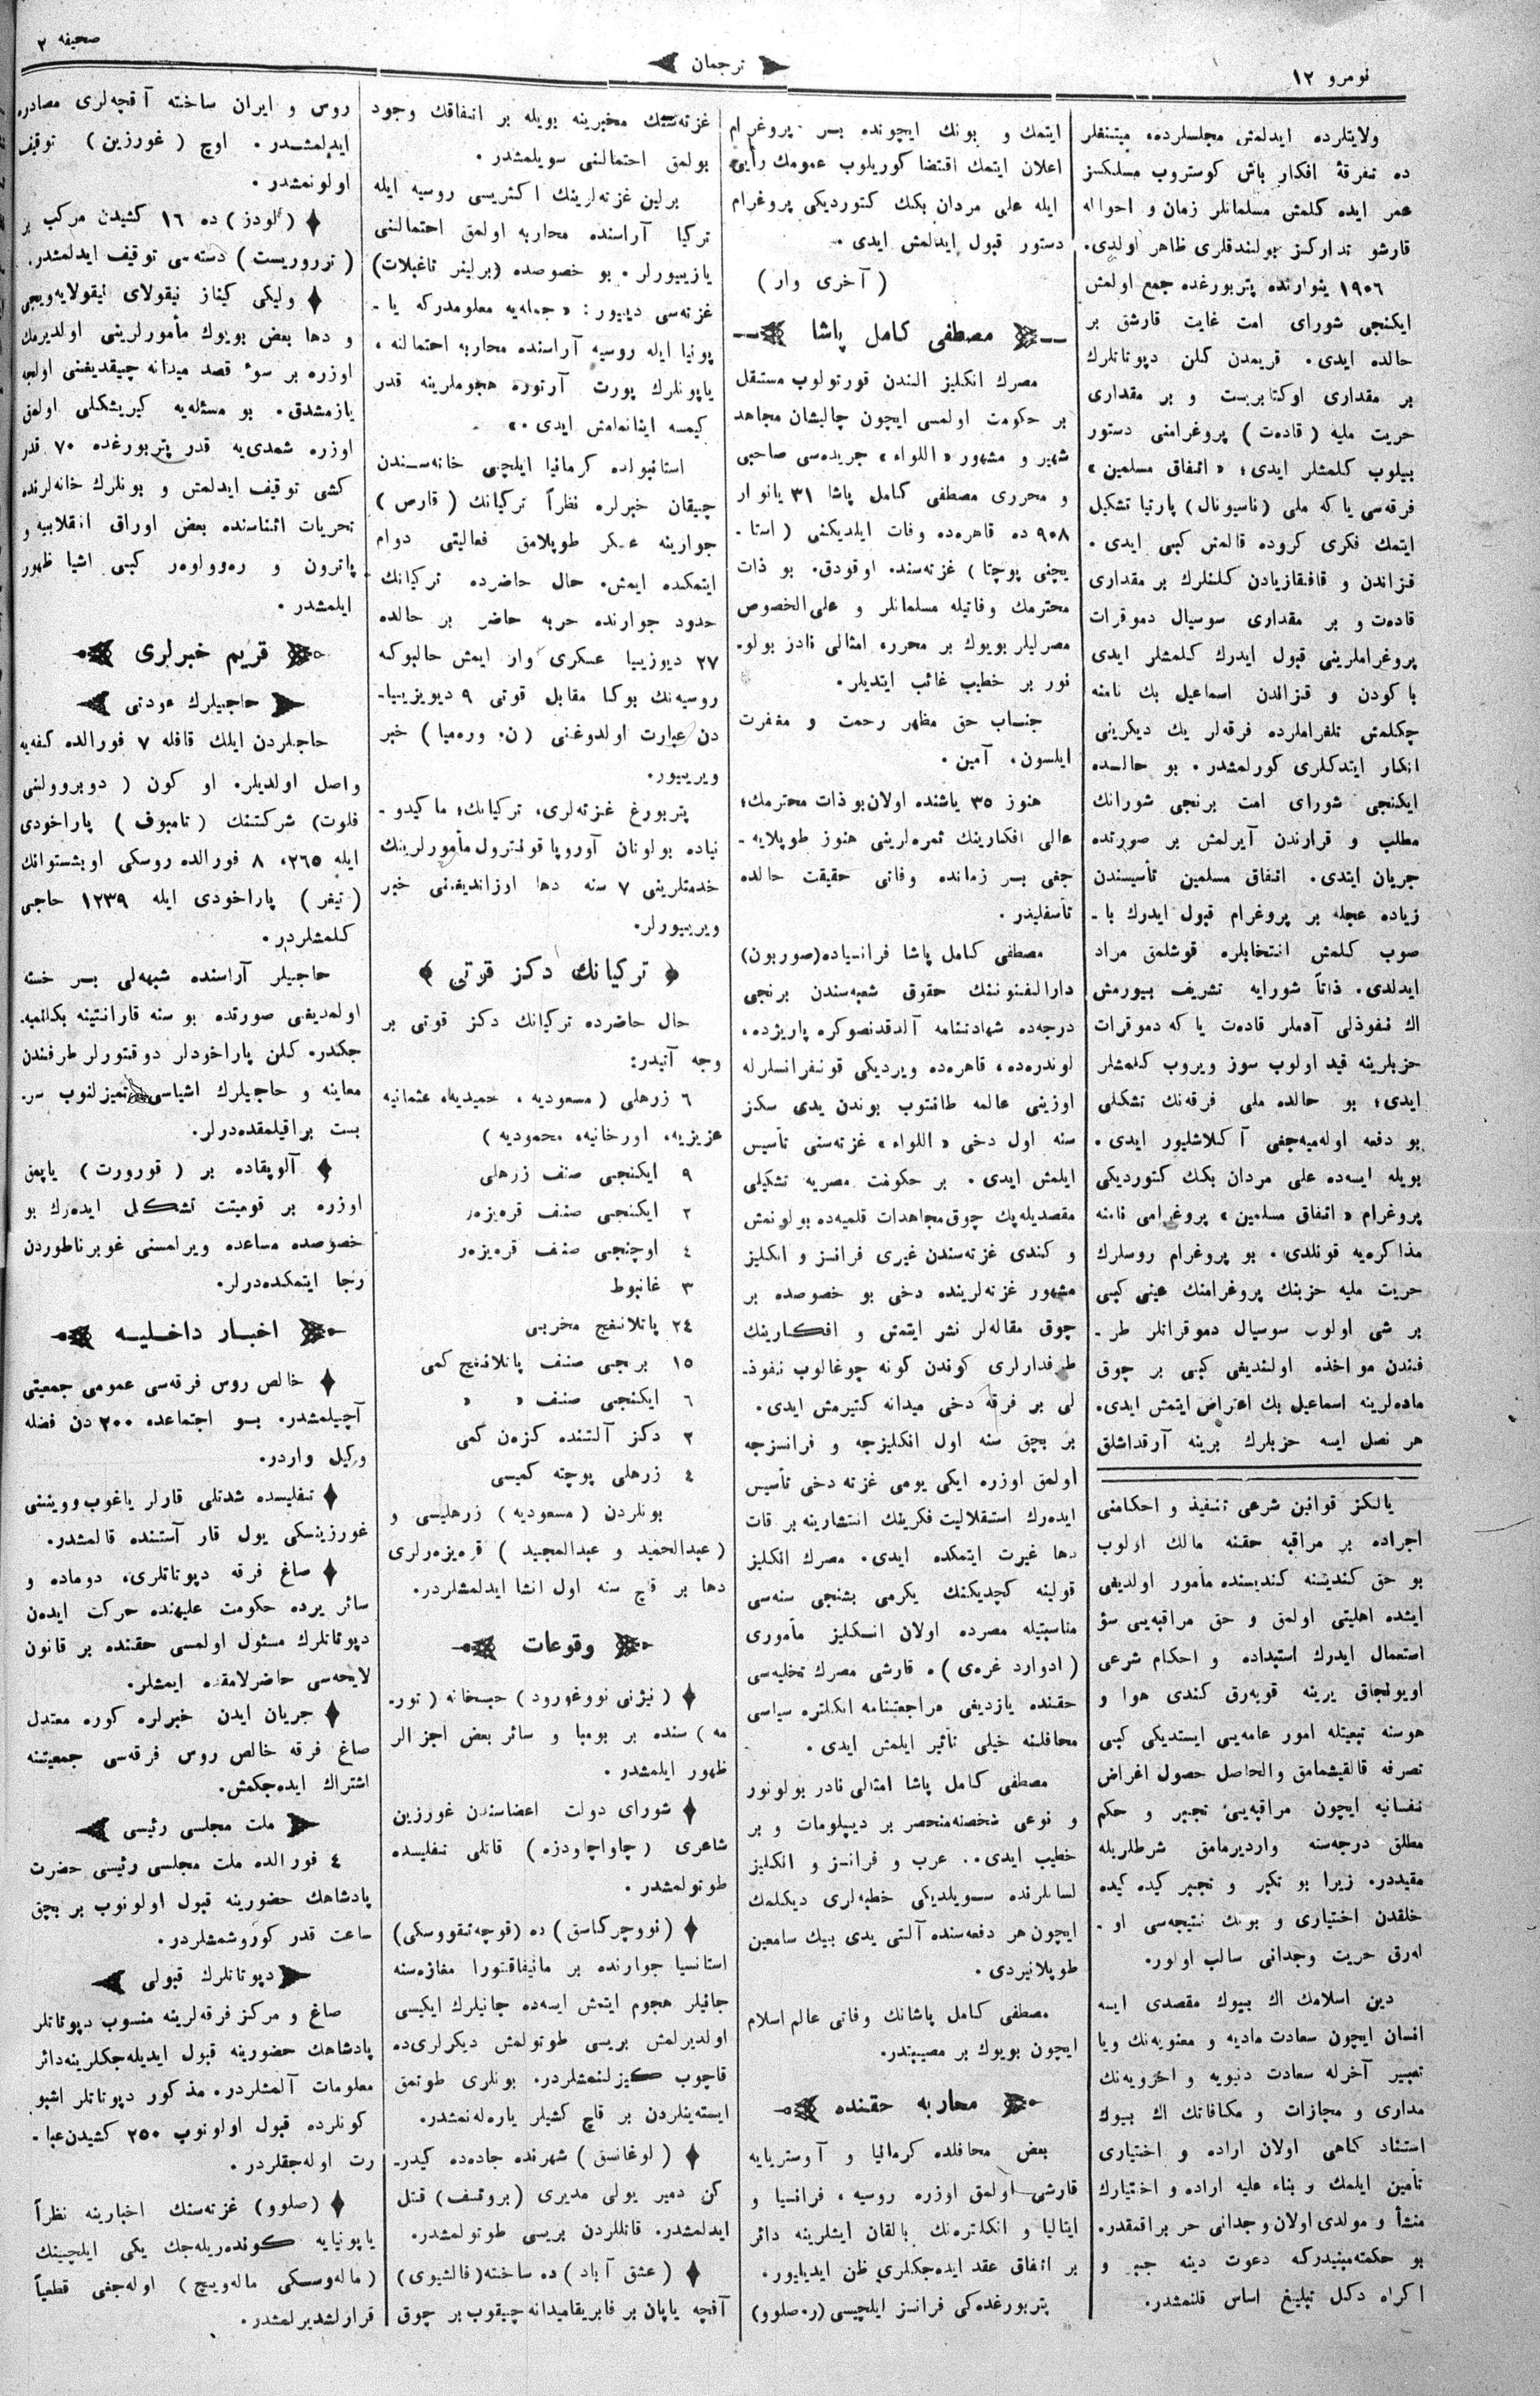 نومرو ١٢
ترجمان
صحیفه ٢
ولایتلرده ایدلمش مجلسلرده، میتنغلر
ده تفرقهٔ افکار باش کوستروب مسلکسز
عمر ایده کلمش مسلمانلر زمان و احواله
قارشو تدارکسز بولندقلری ظاهر اولدی.
١٩٠٦ ینوارنده پتربورغده جمع اولمش
ایکنجی شورای امت غایت قارشق بر
حالده ایدی. قریمدن کلن دپوتاتلرك
بر مقداری اوکتابریست و بر مقداری
حریت ملیه (قادەت) پروغرامنی دستور
بیلوب کلمشلر ایدی؛ «اتفاق مسلمین»
فرقه‌سی یا که ملی (ناسیونال) پارتیا تشکیل
ایتمك فکری کروده قالمش کبی ایدی.
قزاندن و قافقازیادن کلنلرك بر مقداری
قادەت و بر مقداری سوسیال دموقرات
پروغراملرینی قبول ایدرك کلمشلر ایدی
باکودن و قزالدن اسماعیل بك نامنه
چکلمش تلغراملرده فرقه‌لر یك دیکرینی
انکار ایتدکلری کورلمشدر. بو حالده
ایکنجی شورای امت برنجی شورانك
مطلب و قرارندن آیرلمش بر صورتده
جریان ایتدی. اتفاق مسلمین تأسیسندن
زیاده عجله بر پروغرام قبول ایدرك با-
صوب کلمش انتخابلره قوشلمق مراد
ایدلدی. ذاتاً شورایه تشریف بیورمش
اك نفوذلی آدملر قادەت یا که دموقرات
حزبلرینه قید اولوب سوز ویروب کلمشلر
ایدی؛ بو حالده ملی فرقه‌نك تشکلی
بو دفعه اوله‌میه‌جغی آکلاشلیور ایدی.
بویله ایسه‌ده علی مردان بكك کتوردیکی
پروغرام «اتفاق مسلمین» پروغرامی نامنه
مذاکره‌یه قونلدی. بو پروغرام روسلرك
حریت ملیه حزبنك پروغرامنك عینی کبی
بر شی اولوب سوسیال دموقراتلر طر-
فندن مواخذه اولندیغی کبی بر چوق
ماده‌لرینه اسماعیل بك اعتراض ایتمش ایدی.
هر نصل ایسه حزبلرك برینه آرقداشلق
یالکز قوانین شرعی تنفیذ و احکامنی
اجراده بر مراقبه حقنه مالك اولوب
بو حق کندیسنه کندیسنده مأمور اولدیغی
ایشده اهلیتی اولمق و حق مراقبه‌یی سؤ
استعمال ایدرك استبداده و احکام شرعی
اویونجاق یرینه قویه‌رق کندی هوا و
هوسنه تبعیتله امور عامه‌یی ایستدیکی کبی
تصرفه قالقیشمامق والحاصل حصول اغراض
نفسانیه ایچون مراقبه‌یی تجبر و حکم
مطلق درجه‌سنه واردیرمامق شرطلریله
مقیددر. زیرا بو تکبر و تجبر کیده کیده
خلقدن اختیاری و بونك نتیجه‌سی او-
له‌رق حریت وجدانی سالب اولور.
دین اسلامك اك بیوك مقصدی ایسه
انسان ایچون سعادت مادیه و معنویه‌نك ویا
تعبیر آخرله سعادت دنیویه و اخرویه‌نك
مداری و مجازات و مکافاتك اك بیوك
استناد کاهی اولان اراده و اختیاری
تأمین ایلمك و بناء علیه اراده و اختیارك
منشأ و مولدی اولان وجدانی حر براقمقدر.
بو حکمته‌مبنیدرکه دعوت دینه جبر و
اکراه دکل تبلیغ اساس قلنمشدر.
ایتمك و بونك ایچونده بر پروغرام
اعلان ایتمك اقتضا کوریلوب عمومك رأیی
ایله علی مردان بكك کتوردیکی پروغرام
دستور قبول ایدلمش ایدی.
(آخری وار)
مصطفی کامل پاشا
مصرك انکلیز الندن قورتولوب مستقل
بر حکومت اولمسی ایچون چالیشان مجاهد
شهیر و مشهور «اللواء» جریده‌سی صاحبی
و محرری مصطفی کامل پاشا ٣١ یانوار
٩٠٨ ده قاهره‌ده وفات ایلدیکنی (استا-
یچنی پوچتا) غزته‌سنده اوقودق. بو ذات
محترمك وفاتیله مسلمانلر و علی الخصوص
مصرلیلر بویوك بر محرره امثالی نادر بولو-
نور بر خطیب غائب ایتدیلر.
جناب حق مظهر رحمت و مغفرت
ایلسون، آمین.
هنوز ٣٥ یاشنده اولان بو ذات محترمك؛
عالی افکارینك ثمره‌لرینی هنوز طوپلایه-
جغی بر زمانده وفاتی حقیقت حالده
تأسفلیدر.
مصطفی کامل پاشا فرانسیاده (صوربون)
دارالفنوننك حقوق شعبه‌سندن برنجی
درجه‌ده شهادتنامه آلدقدنصوکره پاریزده،
لوندره‌ده، قاهره‌ده ویردیکی قونفرانسلرله
اوزینی عالمه طانتوب بوندن یدی سکز
سنه اول دخی «اللواء» غزته‌سنی تأسیس
ایلمش ایدی. بر حکومت مصریه تشکیلی
مقصدیله‌پك چوق‌مجاهدات قلمیه‌ده بولونمش
و کندی غزته‌سندن غیری فرانسز و انکلیز
مشهور غزته‌لرینده دخی بو خصوصده بر
چوق مقاله‌لر نشر ایتمش و افکارینك
طرفدارلری کوندن کونه چوغالوب نفوذ-
لی بر فرقه دخی میدانه کتیرمش ایدی.
بر بچق سنه اول انکلیزجه و فرانسزجه
اولمق اوزره ایکی یومی غزته دخی تأسیس
ایده‌رك استقلالیت فکرینك انتشارینه بر قات
دها غیرت ایتمکده ایدی. مصرك انکلیز
قولینه کچدیکنك یکرمی بشنجی سنه‌سی
مناسبتیله مصرده اولان انکلیز مأموری
(ادوارد غره‌ی) ه قارشی مصرك تخلیه‌سی
حقنده یازدیغی مراجعتنامه انکلتره سیاسی
محافلنه خیلی تأثیر ایلمش ایدی.
مصطفی کامل پاشا امثالی نادر بولونور
و نوعی شخصنه‌منحصر بر دیپلومات و بر
خطیب ایدی.. عرب و فرانسز و انکلیز
لسانلرنده سویلدیکی خطبه‌لری دیکلمك
ایچون هر دفعه‌سنده آلتی یدی بیك سامعین
طوپلانیردی.
مصطفی کامل پاشانك وفاتی عالم اسلام
ایچون بویوك بر مصیبتدر.
محاربه حقنده
بعض محافلده کرمانیا و آوستریایه
قارشی اولمق اوزره روسیه، فرانسیا و
ایتالیا و انکلتره‌نك بالقان ایشلرینه دائر
بر اتفاق عقد ایده‌جکلری ظن ایدیلیور.
پتربورغده‌کی فرانسز ایلچیسی (ر. صلوو)
غزته‌سنك مخبرینه بویله بر اتفاقك وجود
بولمق احتمالنی سویلمشدر.
برلین غزته‌لرینك اکثریسی روسیه ایله
ترکیا آراسنده محاربه اولمق احتمالنی
یازییورلر. بو خصوصده (برلینر تاغبلات)
غزته‌سی دییور: «جمله‌یه معلومدرکه یا-
پونیا ایله روسیه آراسنده محاربه احتمالنه،
یاپونلرك پورت آرتوره هجوملرینه قدر
کیمسه اینانمامش ایدی.»
استانبولده کرمانیا ایلچی خانه‌سندن
چیقان خبرلره نظراً ترکیانك (قارص)
جوارینه عسکر طوپلامق فعالیتی دوام
ایتمکده ایمش. حال حاضرده ترکیانك
حدود جوارنده حربه حاضر بر حالده
٢٧ دیوزییا عسکری وار ایمش حالبوکه
روسیه‌نك بوکا مقابل قوتی ٩ دیویزییا-
دن عبارت اولدوغنی (ن. وره‌میا) خبر
ویرییور.
پتربورغ غزته‌لری، ترکیانك؛ ماکیدو-
نیاده بولونان آوروپا قونترول مأمورلرینك
خدمتلرینی ٧ سنه دها اوزاندیغنی خبر
ویرییورلر.
ترکیانك دکز قوتی
حال حاضرده ترکیانك دکز قوتی بر
وجه آتیدر:
٦ زرهلی (مسعودیه، حمیدیه، عثمانیه
عزیزیه، اورخانیه، محمودیه)
٩ ایکنجی صنف زرهلی
٢ ایکنجی صنف قره‌یزەر
٤ اوچنجی صنف قره‌یزەر
٣ غانبوط
٢٤ پاتلانغج مخربی
١٥ برنجی صنف پاتلانغج کمی
٦ ایکنجی صنف « «
٢ دکز آلتنده کزەن کمی
٤ زرهلی پوچته کمیسی
بونلردن (مسعودیه) زرهلیسی و
(عبدالحمید و عبدالمجید) قره‌یزەرلری
دها بر قاچ سنه اول انشا ایدلمشلردر.
وقوعات
(نیژنی نووغورود) حبسخانه (تور-
مه) سنده بر بومبا و سائر بعض اجزالر
ظهور ایلمشدر.
شورای دولت اعضاسندن غورزین
شاعری (چاواچاودزه) قاتلی تفلیسده
طوتولمشدر.
(نووچرکاسق) ده (قوچه‌تقووسکی)
استانسیا جوارنده بر مانیفاقتورا مغازه‌سنه
جانیلر هجوم ایتمش ایسه‌ده جانیلرك ایکیسی
اولدیرلمش بریسی طوتولمش دیکرلری‌ده
قاچوب کیزلنمشلردر. بونلری طوتمق
ایسته‌ینلردن بر قاچ کشیلر یاره‌له‌نمشدر.
(لوغانسق) شهرنده جاده‌ده کیدر-
کن دمیر یولی مدیری (بروتسف) قتل
ایدلمشدر. قاتللردن بریسی طوتولمشدر.
(عشق آباد) ده ساخته (فالشیوی)
آقچه یاپان بر فابریقا میدانه چیقوب بر چوق
روس و ایران ساخته آقچه‌لری مصادره
ایدلمشدر. اوچ (غورزین) توقیف
اولونمشدر.
(لودز) ده ١٦ کشیدن مرکب بر
(ترروریست) دسته‌سی توقیف ایدلمشدر.
ولیکی کیناز نیقولای نیقولایه‌ویچی
و دها بعض بویوك مأمورلرینی اولدیرمك
اوزره بر سوء قصد میدانه چیقدیغنی اولجه
یازمشدق. بو مسئله‌یه کیریشکلی اولمق
اوزره شمدی‌یه قدر پتربورغده ٧٠ قدر
کشی توقیف ایدلمش و بونلرك خانه‌لرنده
تحریات اثناسنده بعض اوراق انقلابیه و
پاترون و ره‌وولوەر کبی اشیا ظهور
ایلمشدر.
قریم خبرلری
حاجیلرك عودتی
حاجیلردن ایلك قافله ٧ فورالده کفه‌یه
واصل اولدیلر. او کون (دوبروولنی
فلوت) شرکتنك (تامبوف) پاراخودی
ایله ٢٦٥، ٨ فورالده روسکی اوبشستوانك
(تیغر) پاراخودی ایله ١٢٣٩ حاجی
کلمشلردر.
حاجیلر آراسنده شبهه‌لی بر خسته
اولمدیغی صورتده بو سنه قارانتینه بکلنمیه-
جکدر. کلن پاراخودلر دوقتورلر طرفندن
معاینه و حاجیلرك اشیاسی تمیزلنوب سر-
بست براقیلمقده‌درلر.
آلوپقاده بر (قورورت) یاپمق
اوزره بر قومیتت تشکل ایده‌رك بو
خصوصده مساعده ویرلمسنی غوبرناطوردن
رجا ایتمکده‌درلر.
اخبار داخلیه
خالص روس فرقه‌سی عمومی جمعیتی
آچیلمشدر. بو اجتماعده ٢٠٠ دن فضله
وکیل واردر.
تفلیسده شدتلی قارلر یاغوب ووینننی
غورزینسکی یول قار آستنده قالمشدر.
صاغ فرقه دپوتاتلری، دوماده و
سائر یرده حکومت علیهنده حرکت ایدەن
دپوتاتلرك مسئول اولمسی حقنده بر قانون
لایحه‌سی حاضرلامقده ایمشلر.
جریان ایدن خبرلره کوره معتدل
صاغ فرقه خالص روس فرقه‌سی جمعیتنه
اشتراك ایده‌جکمش.
ملت مجلسی رئیسی
٤ فورالده ملت مجلسی رئیسی حضرت
پادشاهك حضورینه قبول اولونوب بر بچق
ساعت قدر کوروشمشلردر.
دپوتاتلرك قبولی
صاغ و مرکز فرقه‌لرینه منسوب دپوتاتلر
پادشاهك حضورینه قبول ایدیله‌جکلرینه‌دائر
معلومات آلمشلردر. مذکور دپوتاتلر اشبو
کونلرده قبول اولونوب ٢٥٠ کشیدن عبا-
رت اوله‌جقلردر.
(صلوو) غزته‌سنك اخبارینه نظراً
یاپونیایه کونده‌ریله‌جك یکی ایلچینك
(ماله‌وسکی ماله‌ویچ) اوله‌جغی قطعیاً
قرارلشدیرلمشدر.